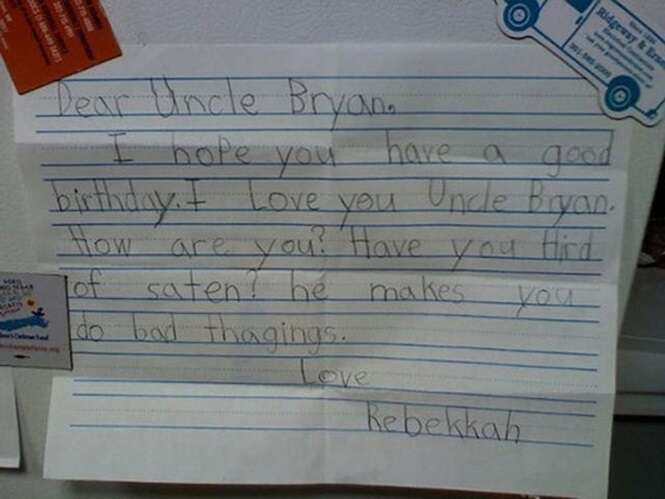 Ridgeway &
Dear Uncle Bryan.
I hope you have a good
birthday. I Love you Uncle Bryan.
How are you? Have you Hird
of saten? he makes you
do bad thagings.
Love
Rebekkah